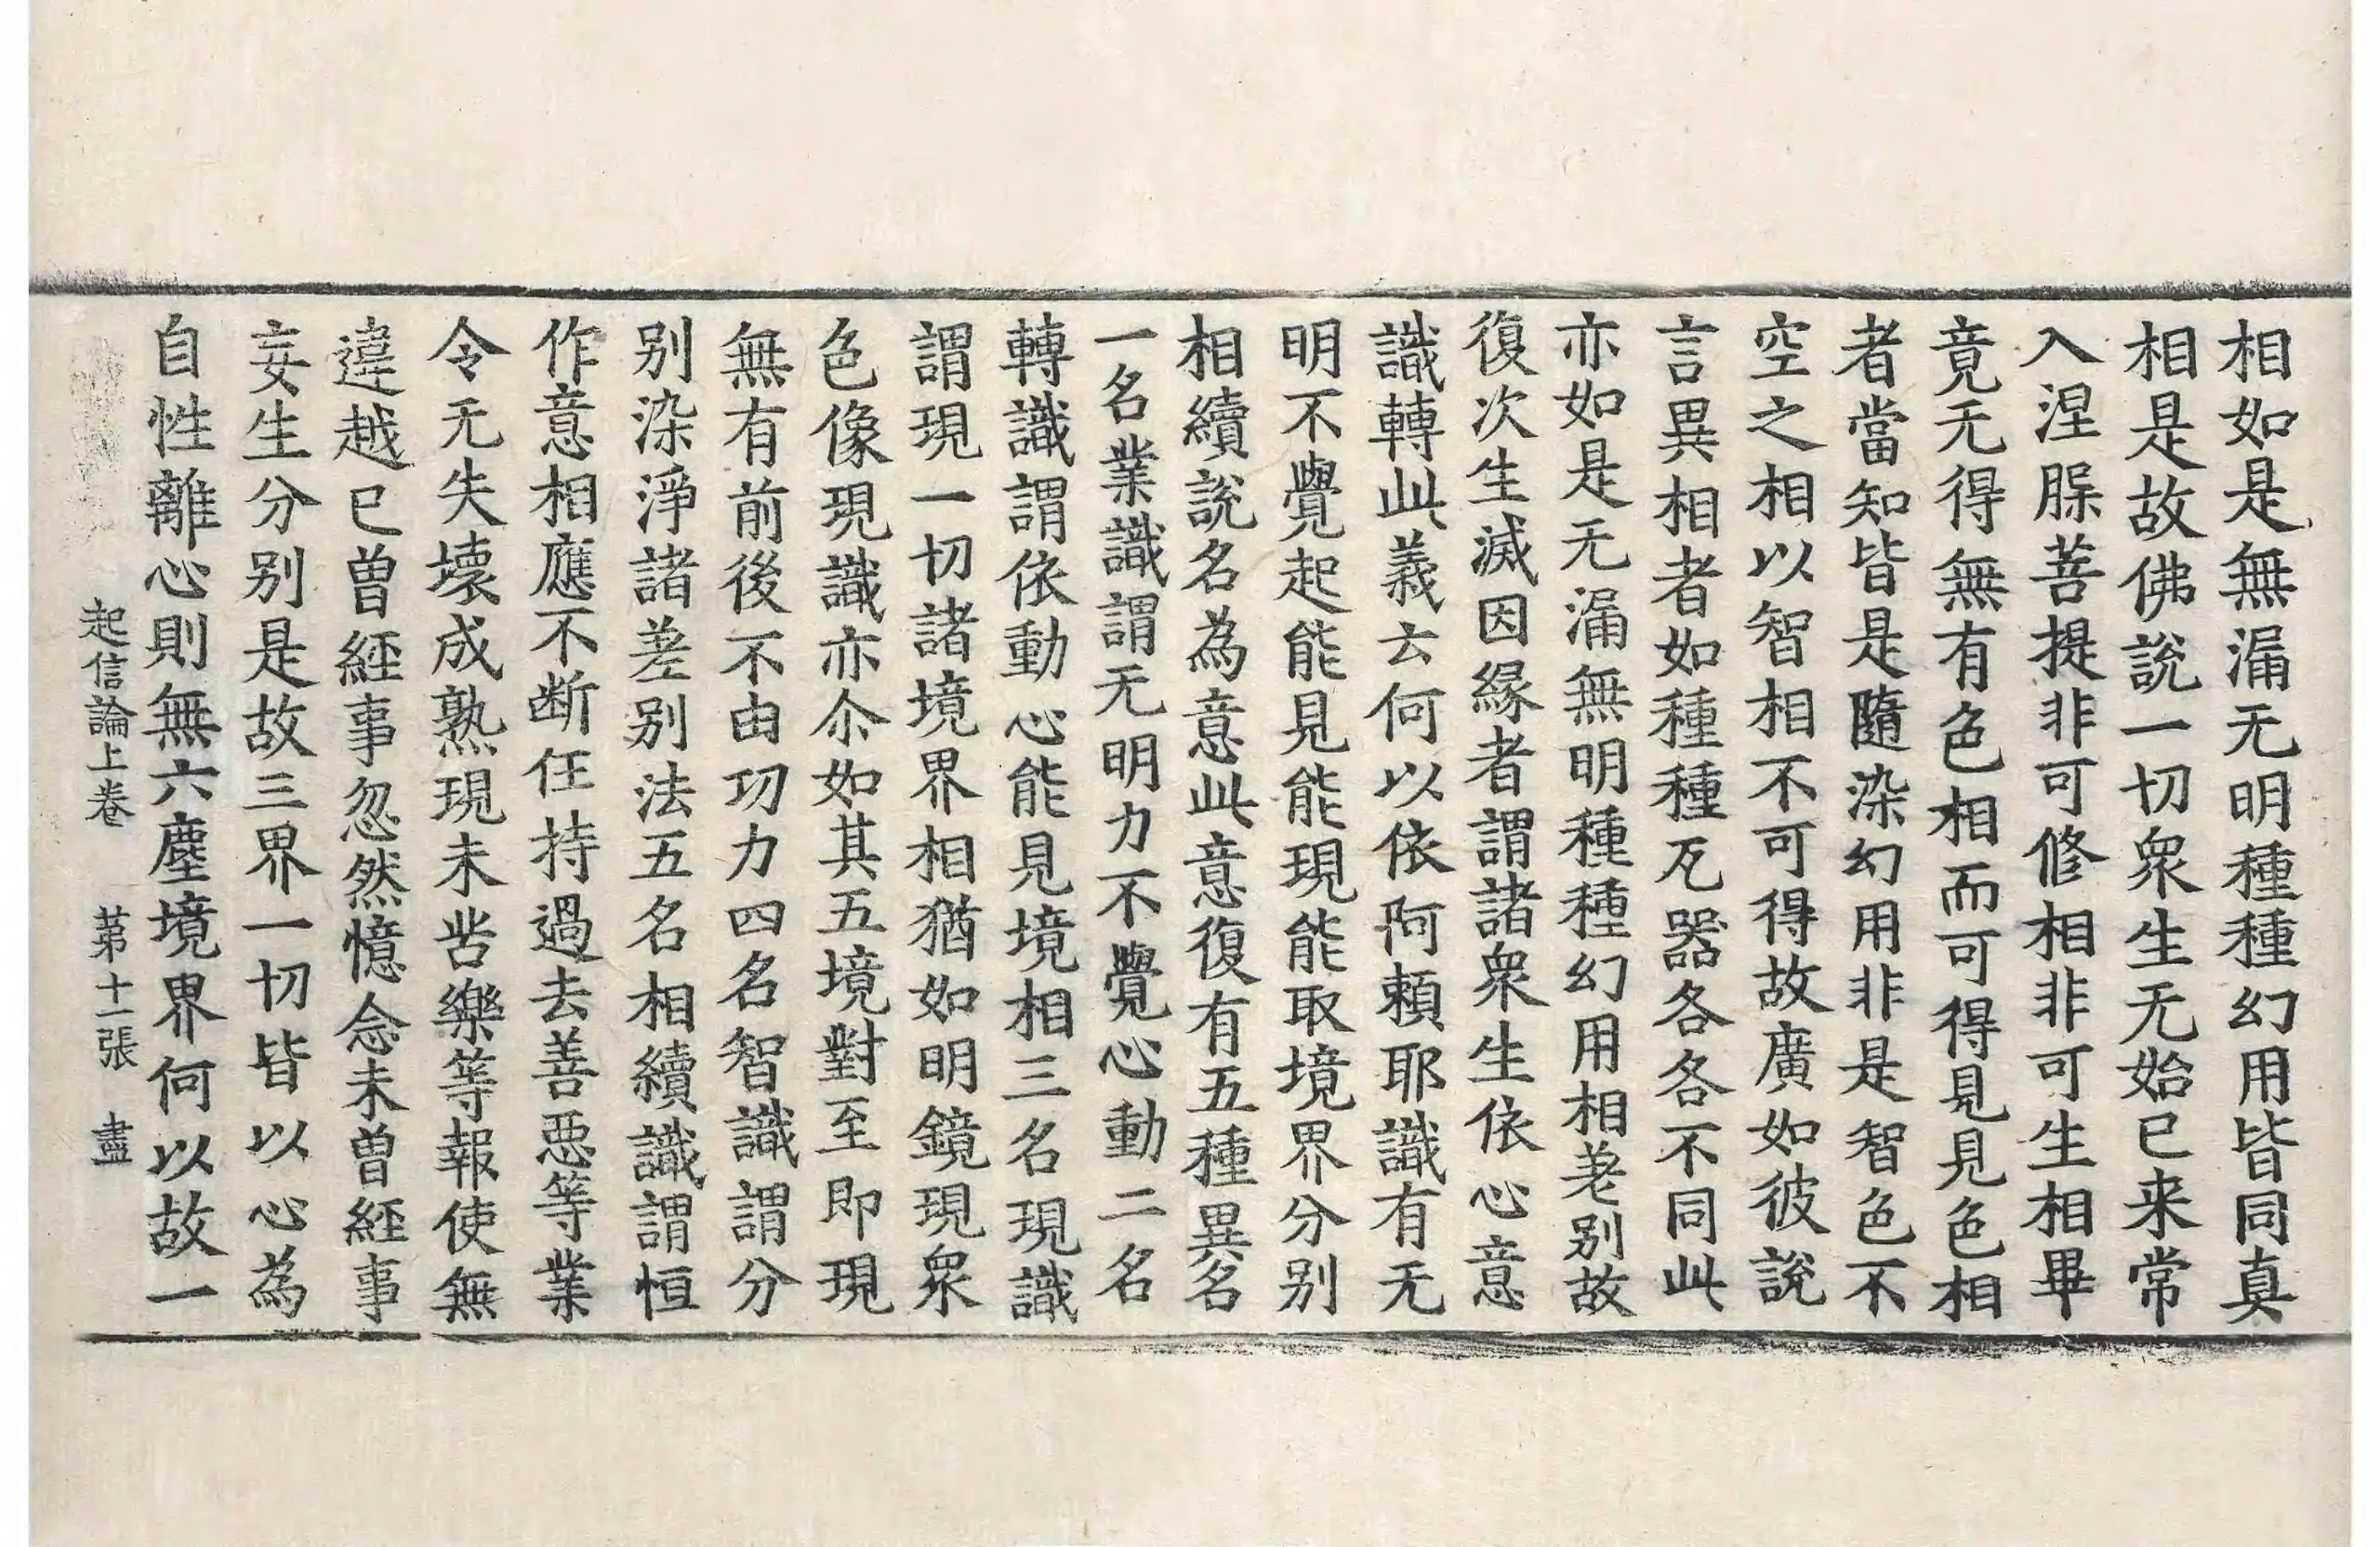 相如是無漏无明種種幻用皆同真
相是故佛說一切衆生无始已来常
入涅槃菩提非可修相非可生相畢
竟无得無有色相而可得見見色相
者當知皆是隨染幻用非是智色不
空之相以智相不可得故廣如彼說
言異相者如種種瓦器各各不同此
亦如是无漏無明種種幻用相差別故
復次生滅因緣者謂諸衆生依心意
識轉此義云何以依阿賴耶識有无
明不覺起能見能現能取境界分别
相續說名為意此意復有五種異名
一名業識謂无明力不覺心動二名
轉識謂依動心能見境相三名現識
謂現一切諸境界相猶如明鏡現衆
色像現識亦尒如其五境對至即現
無有前後不由功力四名智識謂分
别染淨諸差别法五名相續識謂恒
作意相應不断任持過去善惡等業
令无失壞成熟現未苦樂等報使無
違越已曽經事忽然憶念未曽經事
妄生分别是故三界一切皆以心為
自性離心則無六塵境界何以故一
起信論上卷 苐十一張 盡